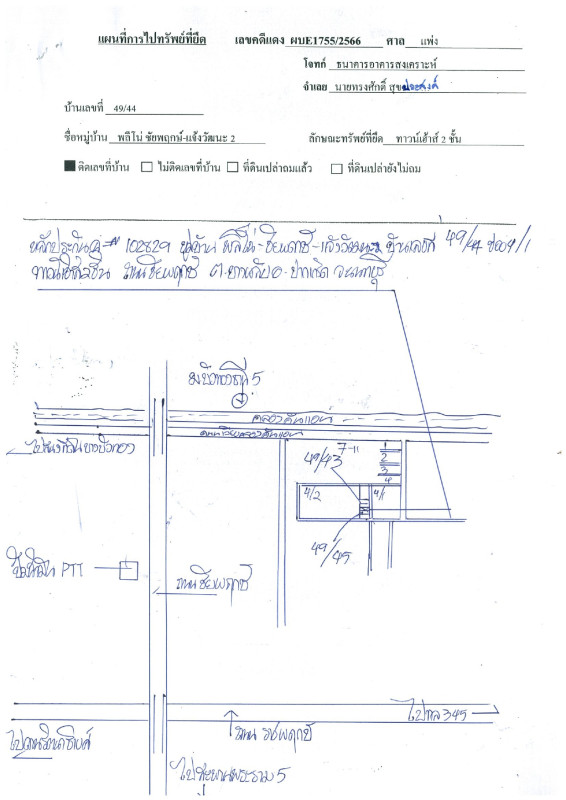 แผนที่การไปทรัพย์ที่ยึด เลขคดีแดง ผบE1755/2566 ศาล แพ่ง
โจทก์ ธนาคารอาคารสงเคราะห์
จำเลย นายทรงศักดิ์ สุขประสงค์
บ้านเลขที่ 49/44
ชื่อหมู่บ้าน พลีโน่ ชัยพฤกษ์-แจ้งวัฒนะ 2 ลักษณะทรัพย์ที่ยึด ทาวน์เฮ้าส์ 2 ชั้น
ติดเลขที่บ้าน ไม่ติดเลขที่บ้าน ที่ดินเปล่าถมแล้ว ที่ดินเปล่ายังไม่ถม
หลักประกัน 102829 หมู่บ้าน พลีโน่-ชัยพฤกษ์-แจ้งวัฒนะ 2 บ้านเลขที่ 49/44 ซอย 4/1
ถนนชัยพฤกษ์ อ.ปากเกร็ด จ.นนทบุรี
5
7-11
1
2
3
4
49/43
4/2
4/1
49/45
ปั๊มน้ำมัน PTT
ถนนชัยพฤกษ์
ไป 345
ถนน ราชพฤกษ์
ไปสะพานพระราม 5